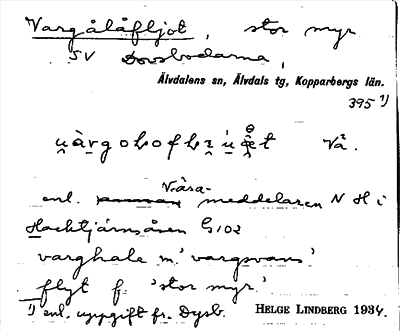 Vargålåfljot, stor myr
SV Dovsbodarna,
Älvdalens sn, Älvdals tg, Kopparbergs län.
395 1)
Vå2.
Våsa-
enl. meddelaren N H i
Hacktjärnsåsen G102
varghale m. 'vargsvans'
flyt f. 'stor myr'
1) enl. uppgift fr. Dysb. HELGE LINDBERG 1934.